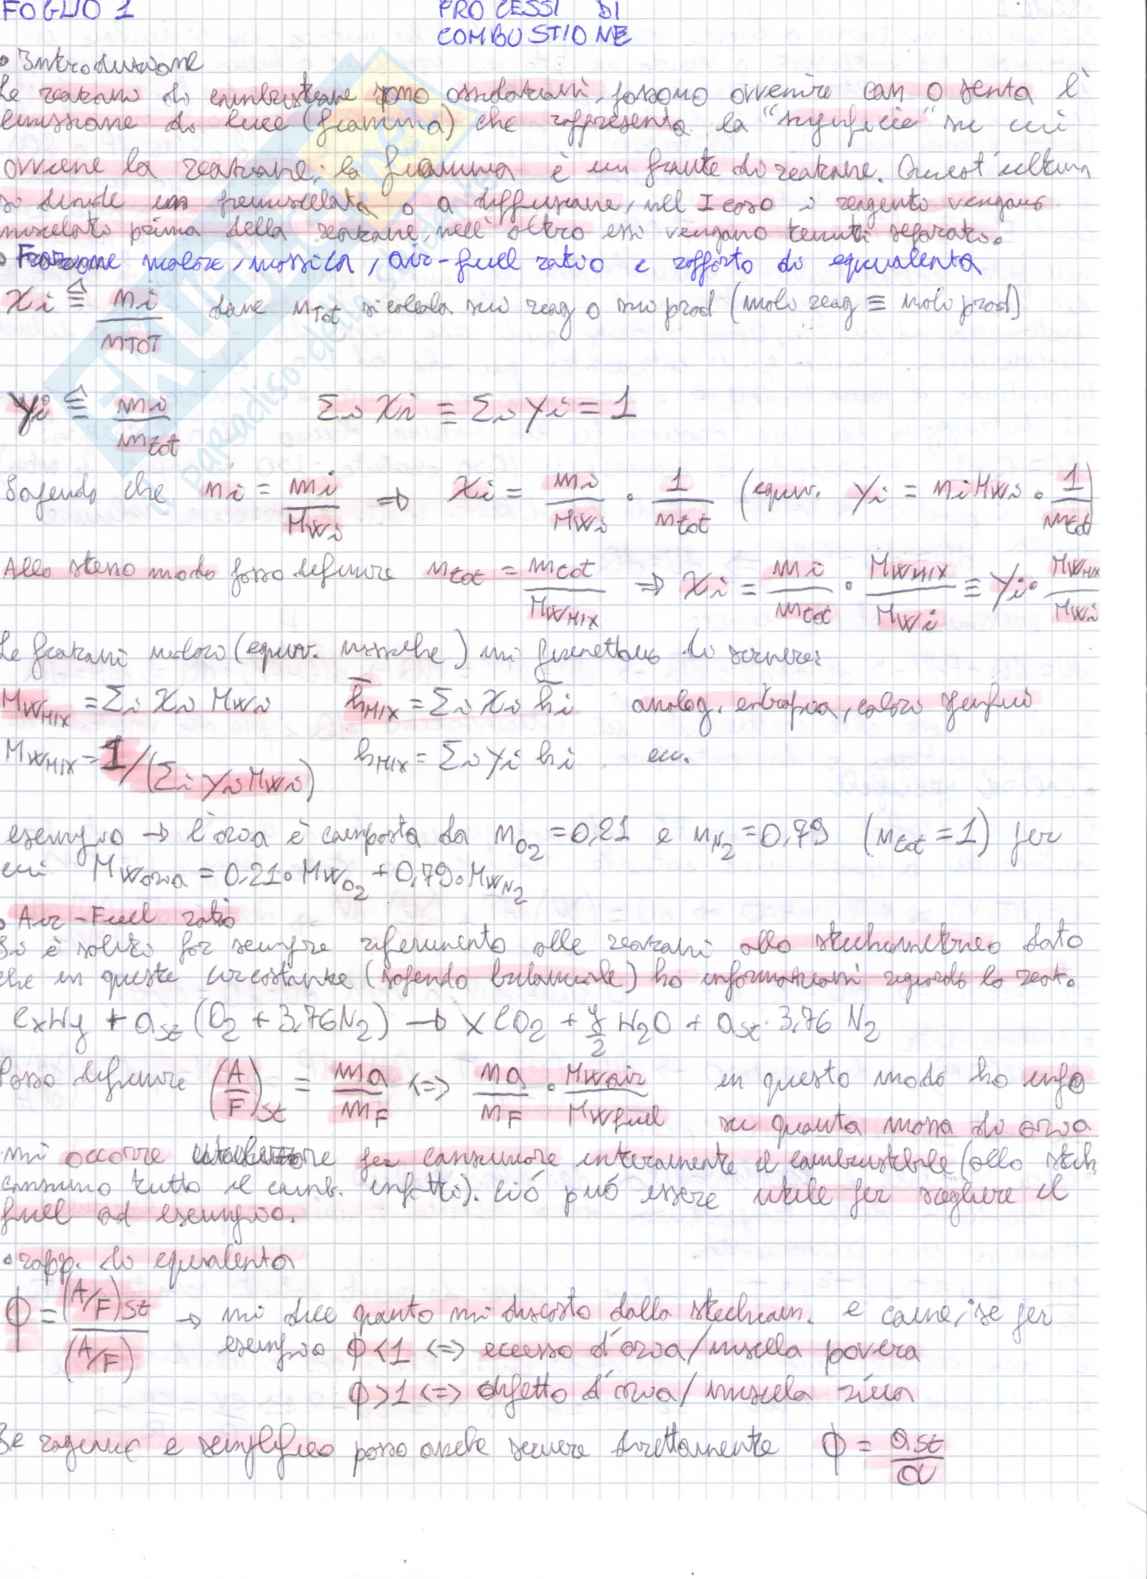 FOGLIO 1 PROCESSI DI
COMBUSTIONE
• Introduzione
Le reazioni di combustione sono ossidazioni, possono avvenire con o senza l'
emissione di luce (fiamma) che rappresenta la "superficie" su cui
avviene la reazione; la fiamma è un fronte di reazione. Quest'ultima
si divide in premiscelata o a diffusione, nel I caso i reagenti vengono
miscelati prima della reazione, nell'altro essi vengono tenuti separati.
• Frazione molare, massica, air-fuel ratio e rapporto di equivalenza
Xi ≙ ni/nTOT dove nTot si calcola sui reag o sui prod (moli reag ≡ moli prod)
Yi ≙ mi/mtot Σi Xi ≡ Σi Yi = 1
Sapendo che ni = mi/MWi ⇒ Xi = mi/MWi · 1/ntot (equiv. Yi = ni MWi · 1/mtot)
Allo stesso modo posso definire ntot = mtot/MWMIX ⇒ Xi = mi/mtot · MWMIX/MWi ≡ Yi · MWMIX/MWi
Le frazioni molari (equiv. massiche) mi permettono di scrivere:
MWMIX = Σi Xi MWi h̅MIX = Σi Xi h̅i analog. entropia, calori specifici
MWMIX = 1/(Σi Yi MWi) hMIX = Σi Yi hi ecc.
esempio → l'aria è composta da nO2 = 0,21 e nN2 = 0,79 (ntot = 1) per
cui MWaria = 0.21 · MWO2 + 0,79 · MWN2
• Air-Fuel ratio
Si è soliti far sempre riferimento alle reazioni allo stechiometrico dato
che in queste circostanze (sapendo bilanciarle) ho informazioni riguardo la reaz.
CxHy + ast (O2 + 3,76 N2) → X CO2 + y/2 H2O + ast · 3,76 N2
Posso definire (A/F)st = ma/mF <=> na/nF · MWair/MWfuel in questo modo ho info
su quanta massa di aria
mi occorre per consumare interamente il combustibile (allo stech
consumo tutto il comb. infatti). Ciò può essere utile per scegliere il
fuel ad esempio.
• rapp. di equivalenza
Φ = (A/F)st/(A/F) → mi dice quanto mi discosto dallo stechiom. e come, se per
esempio Φ<1 <=> eccesso d'aria/miscela povera
Φ>1 <=> difetto d'aria/miscela ricca
Se e semplifico posso anche scrivere direttamente Φ = ast/a